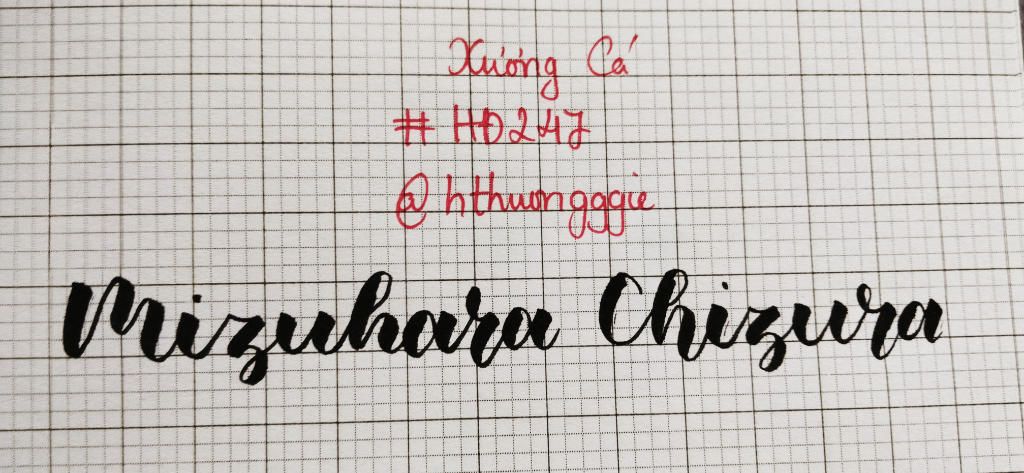 Xương Cá
# HĐ247
@hthuongggie
Mizuhara Chizura